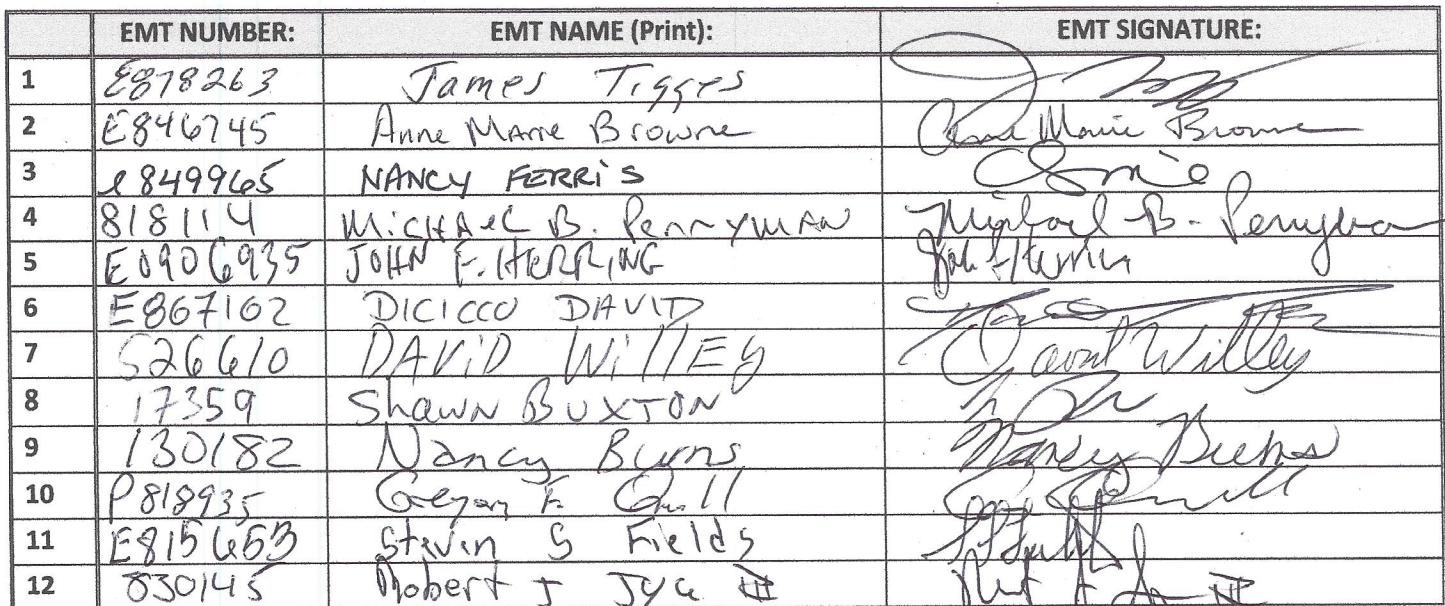 EMT NUMBER: EMT NAME (Print): EMT SIGNATURE:
1 E878263 James Tigges
2 E846745 Anne Marie Browne Anne Marie Browne
3 e849965 NANCY FERRiS
4 818114 MiCHAel B. PerrYMAN Michael B. Perryman
5 E0906935 JOHN F. HERRING John F Herring
6 E867102 DICICCO DAVID
7 526610 DAViD WillEy David Willey
8 17359 ShawN BUXTON
9 130182 Nancy Burns Nancy Burns
10 P818935 F. Quill
11 E815653 Steven S Fields
12 830145 Robert J III